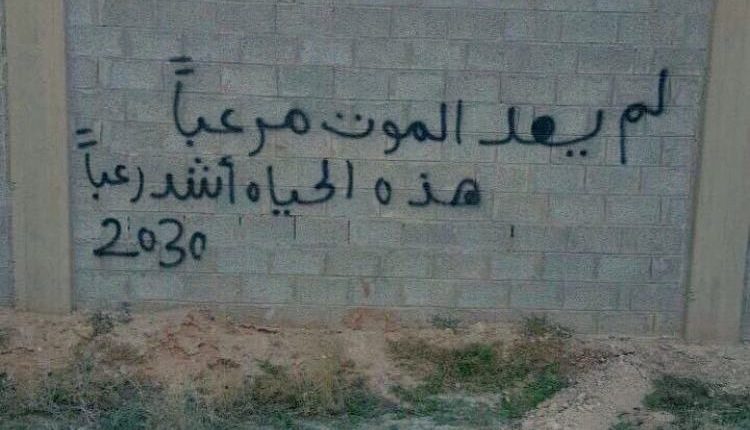 لم يعد الموت مرعباً
هذه الحياه أشد رعباً
2030